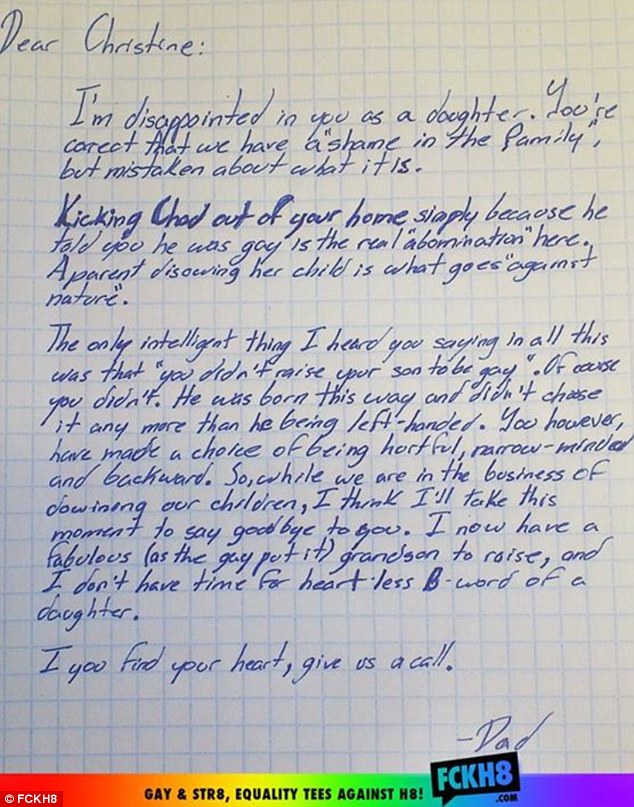 Dear Christine:
I'm disappointed in you as a daughter. You're
corect that we have a "shame in the family",
but mistaken about what it is.
Kicking Chad out of your home simply because he
told you he was gay is the real "abomination" here.
A parent disowing her child is what goes "against
nature".
The only intelligent thing I heard you saying in all this
was that "you didn't raise your son to be gay". Of couse
you didn't. He was born this way and didn't choose
it any more than he being left-handed. You however,
have made a choice of being hortful, narrow-minded
and backward. So, while we are in the business of
dowinong our children, I think I'll take this
moment to say goodbye to you. I now have a
fabulous (as the gay put it) grandson to raise, and
I don't have time for heart-less B-word of a
daughter.
I you find your heart, give us a call.
-Dad
GAY & STR8, EQUALITY TEES AGAINST H8!
FCKH8
.COM
© FCKH8